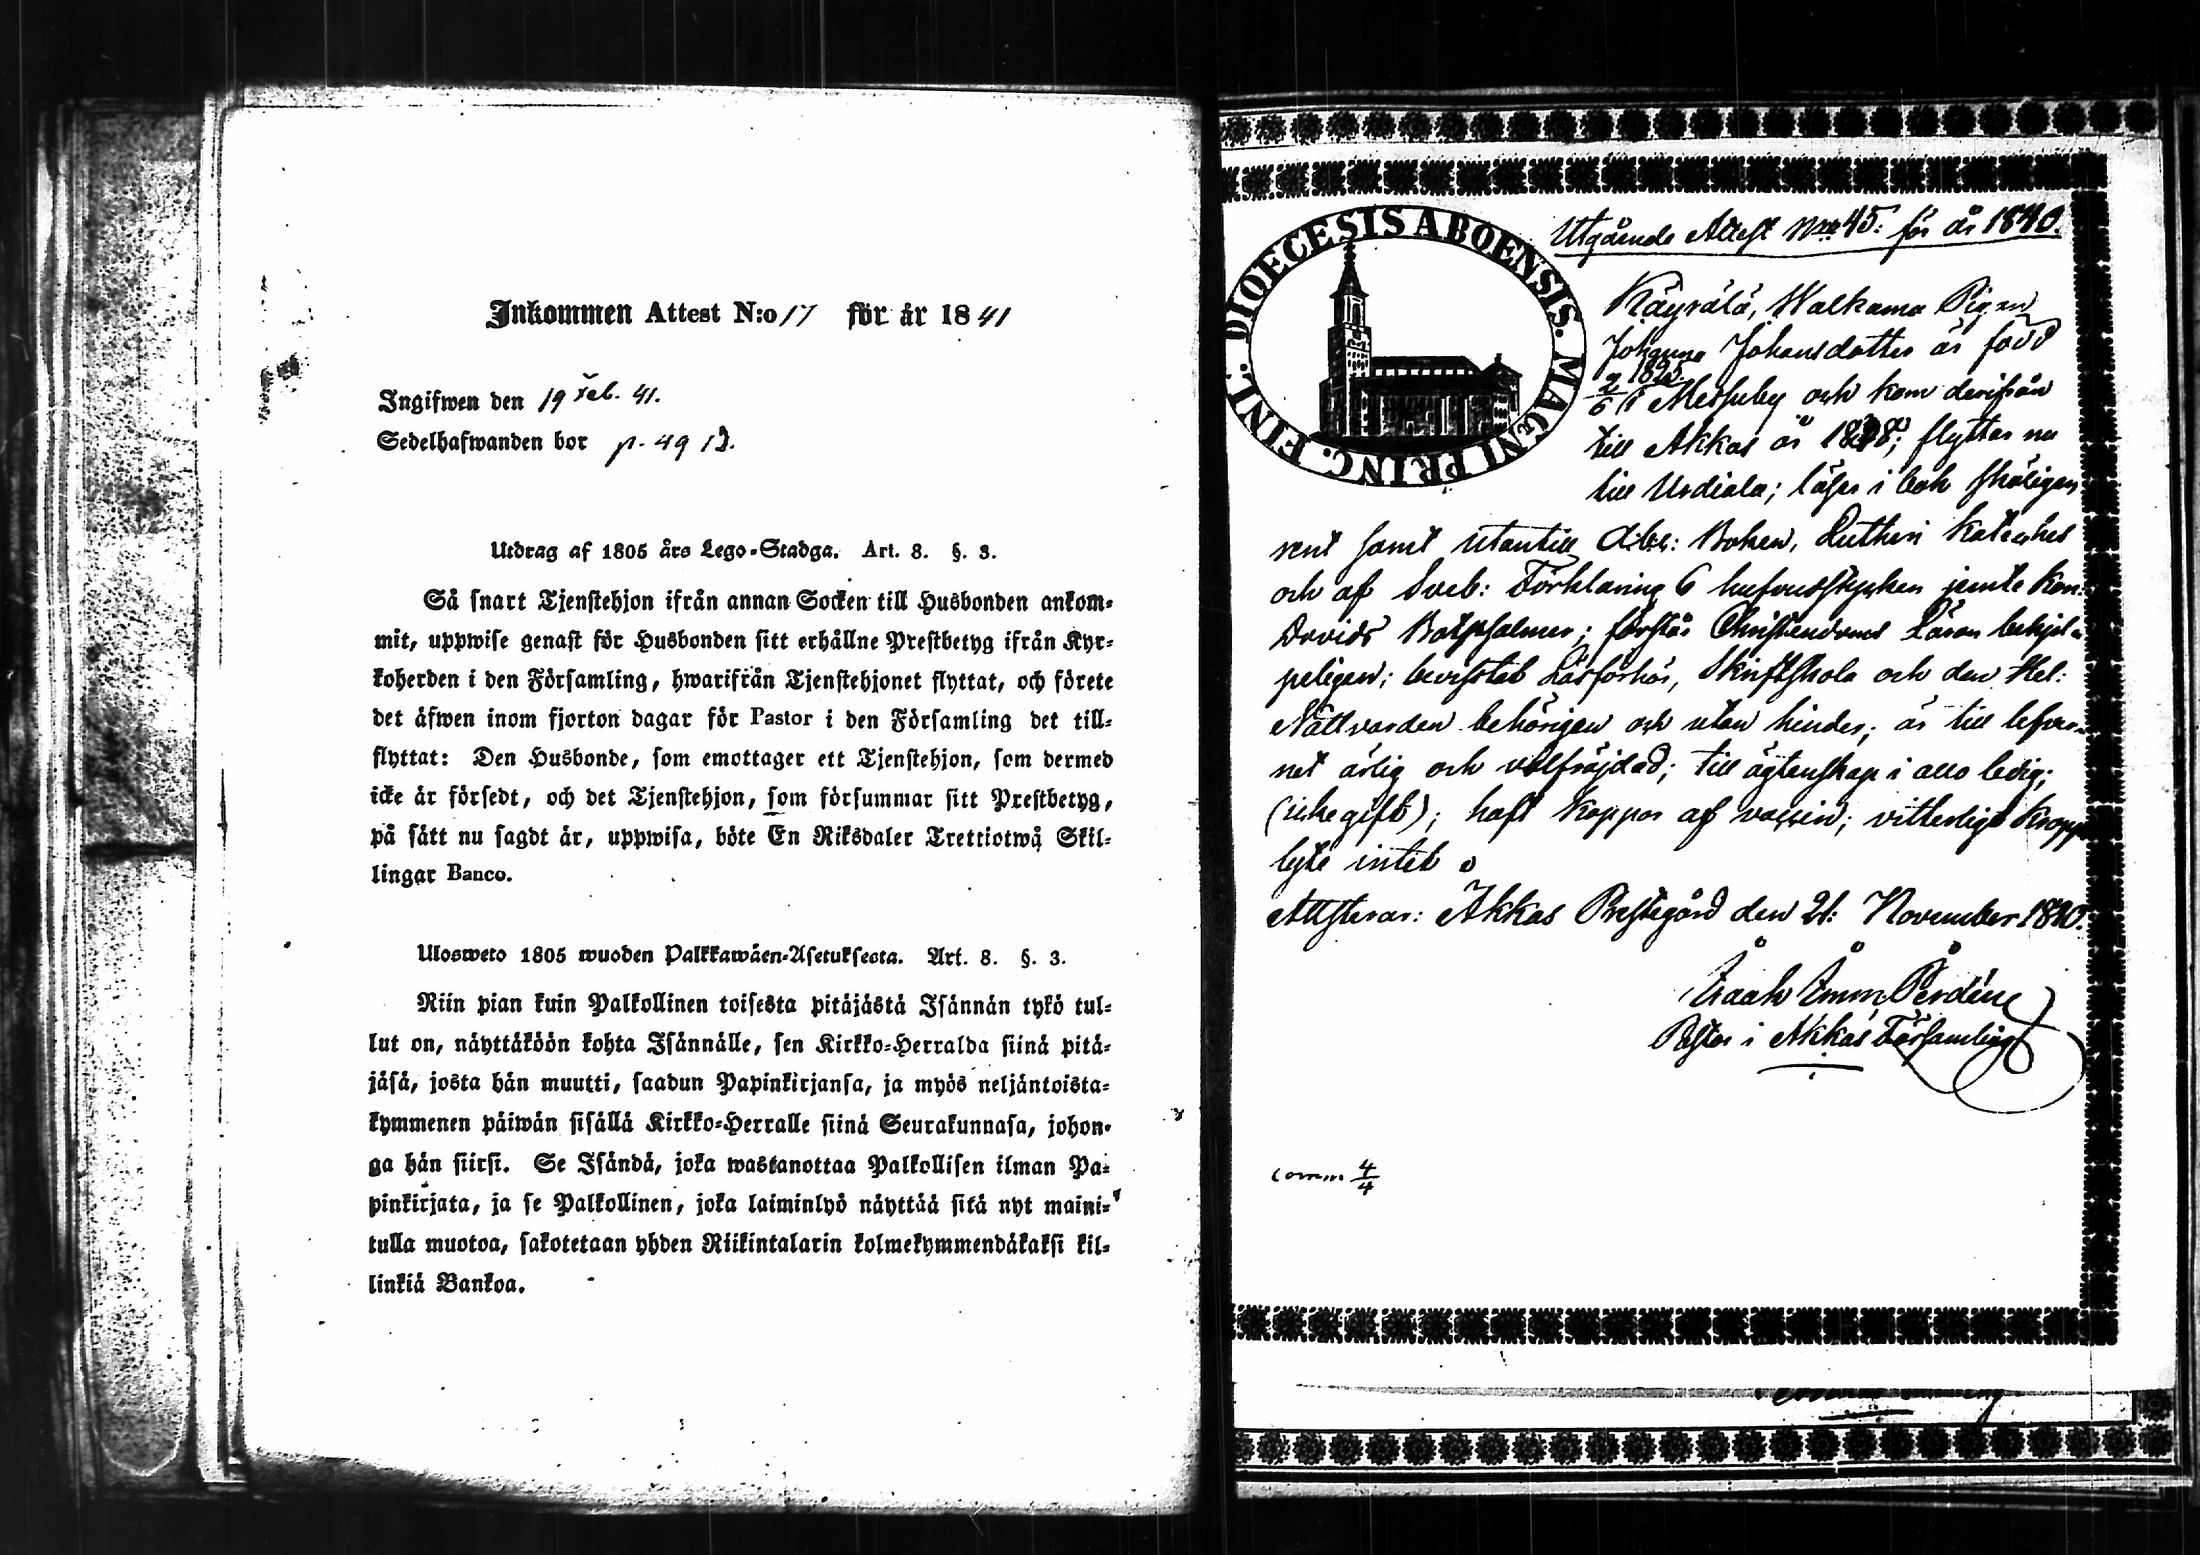 Inkommen Attest N:o 17 för år 1841
Ingifwen den 19 Feb. 41.
Sedelhafwanden bor p. 49
Utdrag af 1805 års Lego-Stadga. Art. 8. §. 3.
Så snart Tjenstehjon ifrån annan Socken till Husbonden ankom-
mit, uppwise genast för Husbonden sitt erhållne Prestbetyg ifrån Kyr-
koherden i den Församling, hwarifrån Tjenstehjonet flyttat, och förete
det äfwen inom fjorton dagar för Pastor i den Församling det till-
flyttat: Den Husbonde, som emottager ett Tjenstehjon, som dermed
icke är försedt, och det Tjenstehjon, som försummar sitt Prestbetyg,
på sätt nu sagdt är, uppwisa, böte En Riksdaler Trettiotwå Skil-
lingar Banco.
Ulosweto 1805 wuoden Palkkawäen-Asetuksesta. Art. 8. §. 3.
Niin pian kuin Palkollinen toisesta pitäjästä Isännän tykö tul-
lut on, näyttäköön kohta Isännälle, sen Kirkko-Herralda siinä pitä-
jäsä, josta hän muutti, saadun Papinkirjansa, ja myös neljäntoista-
kymmenen päiwän sisällä Kirkko-Herralle siinä Seurakunnasa, johon-
ga hän siirsi. Se Isändä, joka wastanottaa Palkollisen ilman Pa-
pinkirjata, ja se Palkollinen, joka laiminlyö näyttää sitä nyt maini-
tulla muotoa, sakotetaan yhden Riikintalarin kolmekymmendäkaksi kil-
linkiä Bankoa.
DIOECESIS ABOENSIS. MAGNI PRINC. FINL.
Utgående Attest Nro 45. för år 1840.
Käyrälä, Walkama Pigan
Johanna Johansdotter är född
2/6 1825 i Messuby och kom derifrån
till Akkas år 1838; flyttar nu
till Urdiala; läser i bok skäligen
rent samt utantill Abc: Boken, Lutheri Kateches
och af Sveb: Förklaring 6 hufvudstycken jemte Kon:
Davids Botpsalmer; förstår Christendoms Läran behjel-
peligen; bevistat Läsförhör, Skriftskola och den Hel:
Nattvarden behörigen och utan hinder; är till lefver-
net ärlig och välfräjdad; till ägtenskap i allo ledig;
(icke gift); haft koppor af vaccin; vitterligt kropps
lyte intet
Attesterar: Akkas Prestegård den 21: November 1840.
Isaak Emm
Pastor i Akkas Församling
comm 4/4